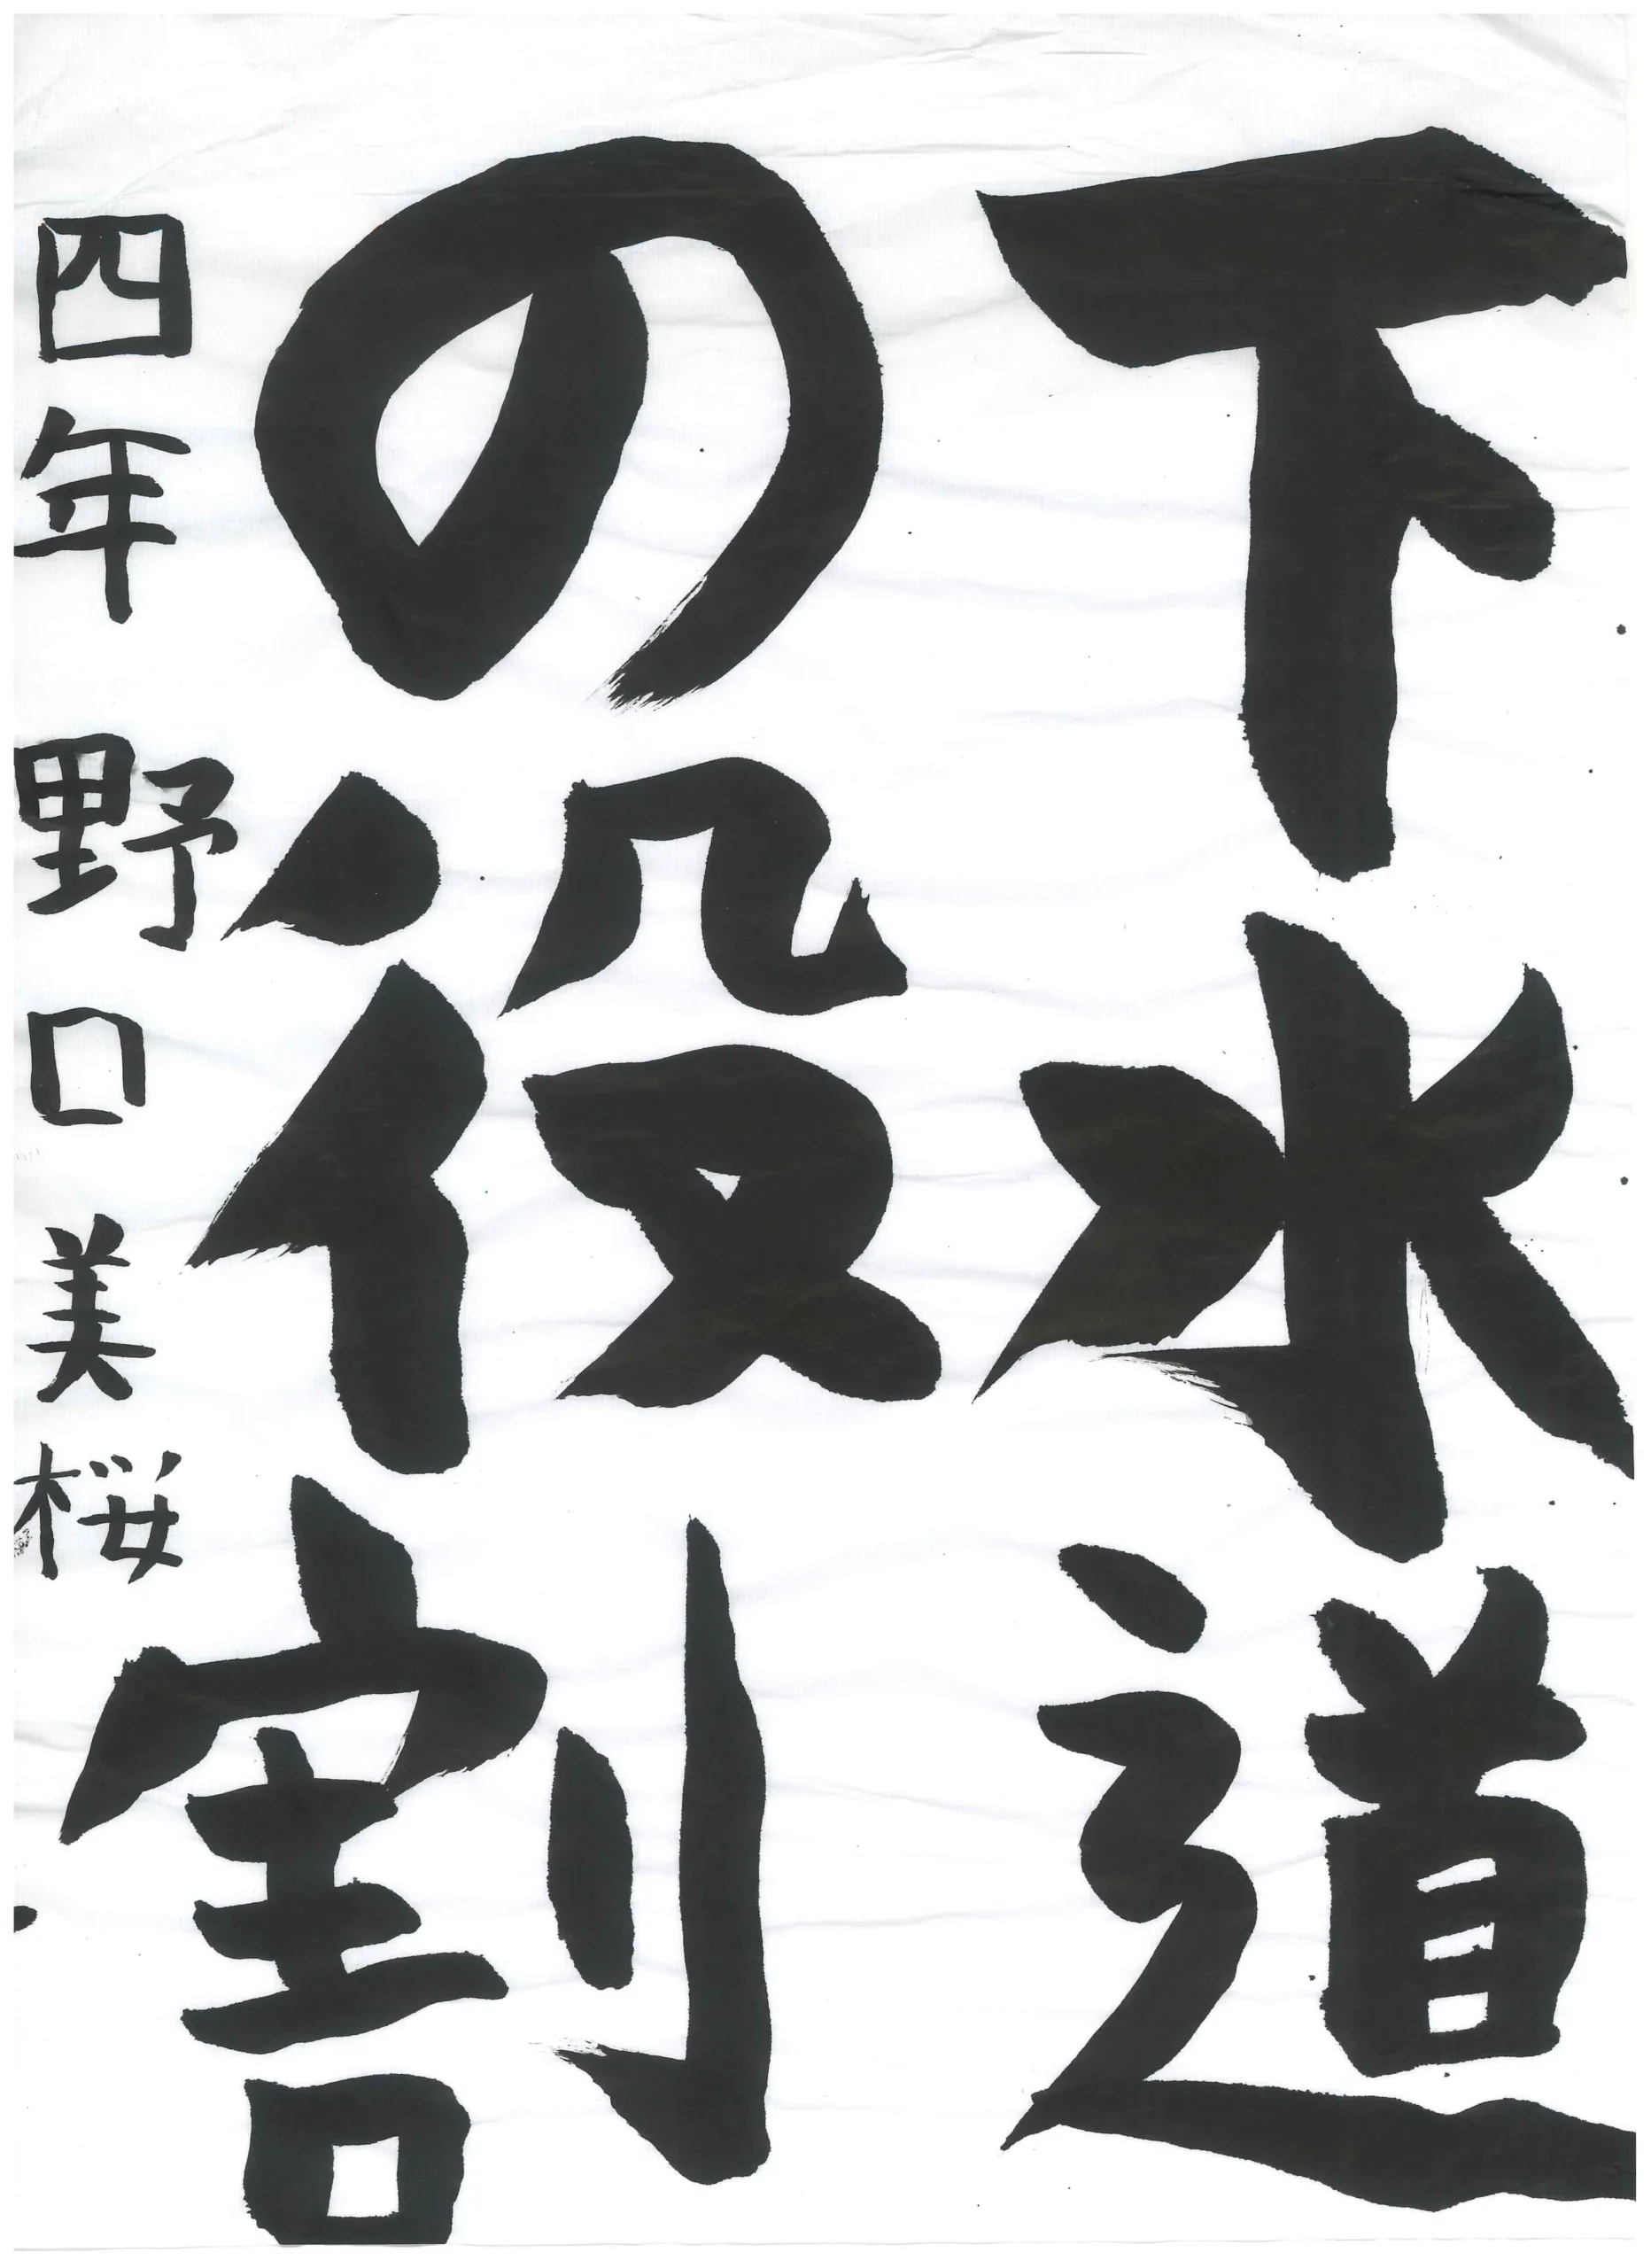 下水道
の役割
四年 野口美桜